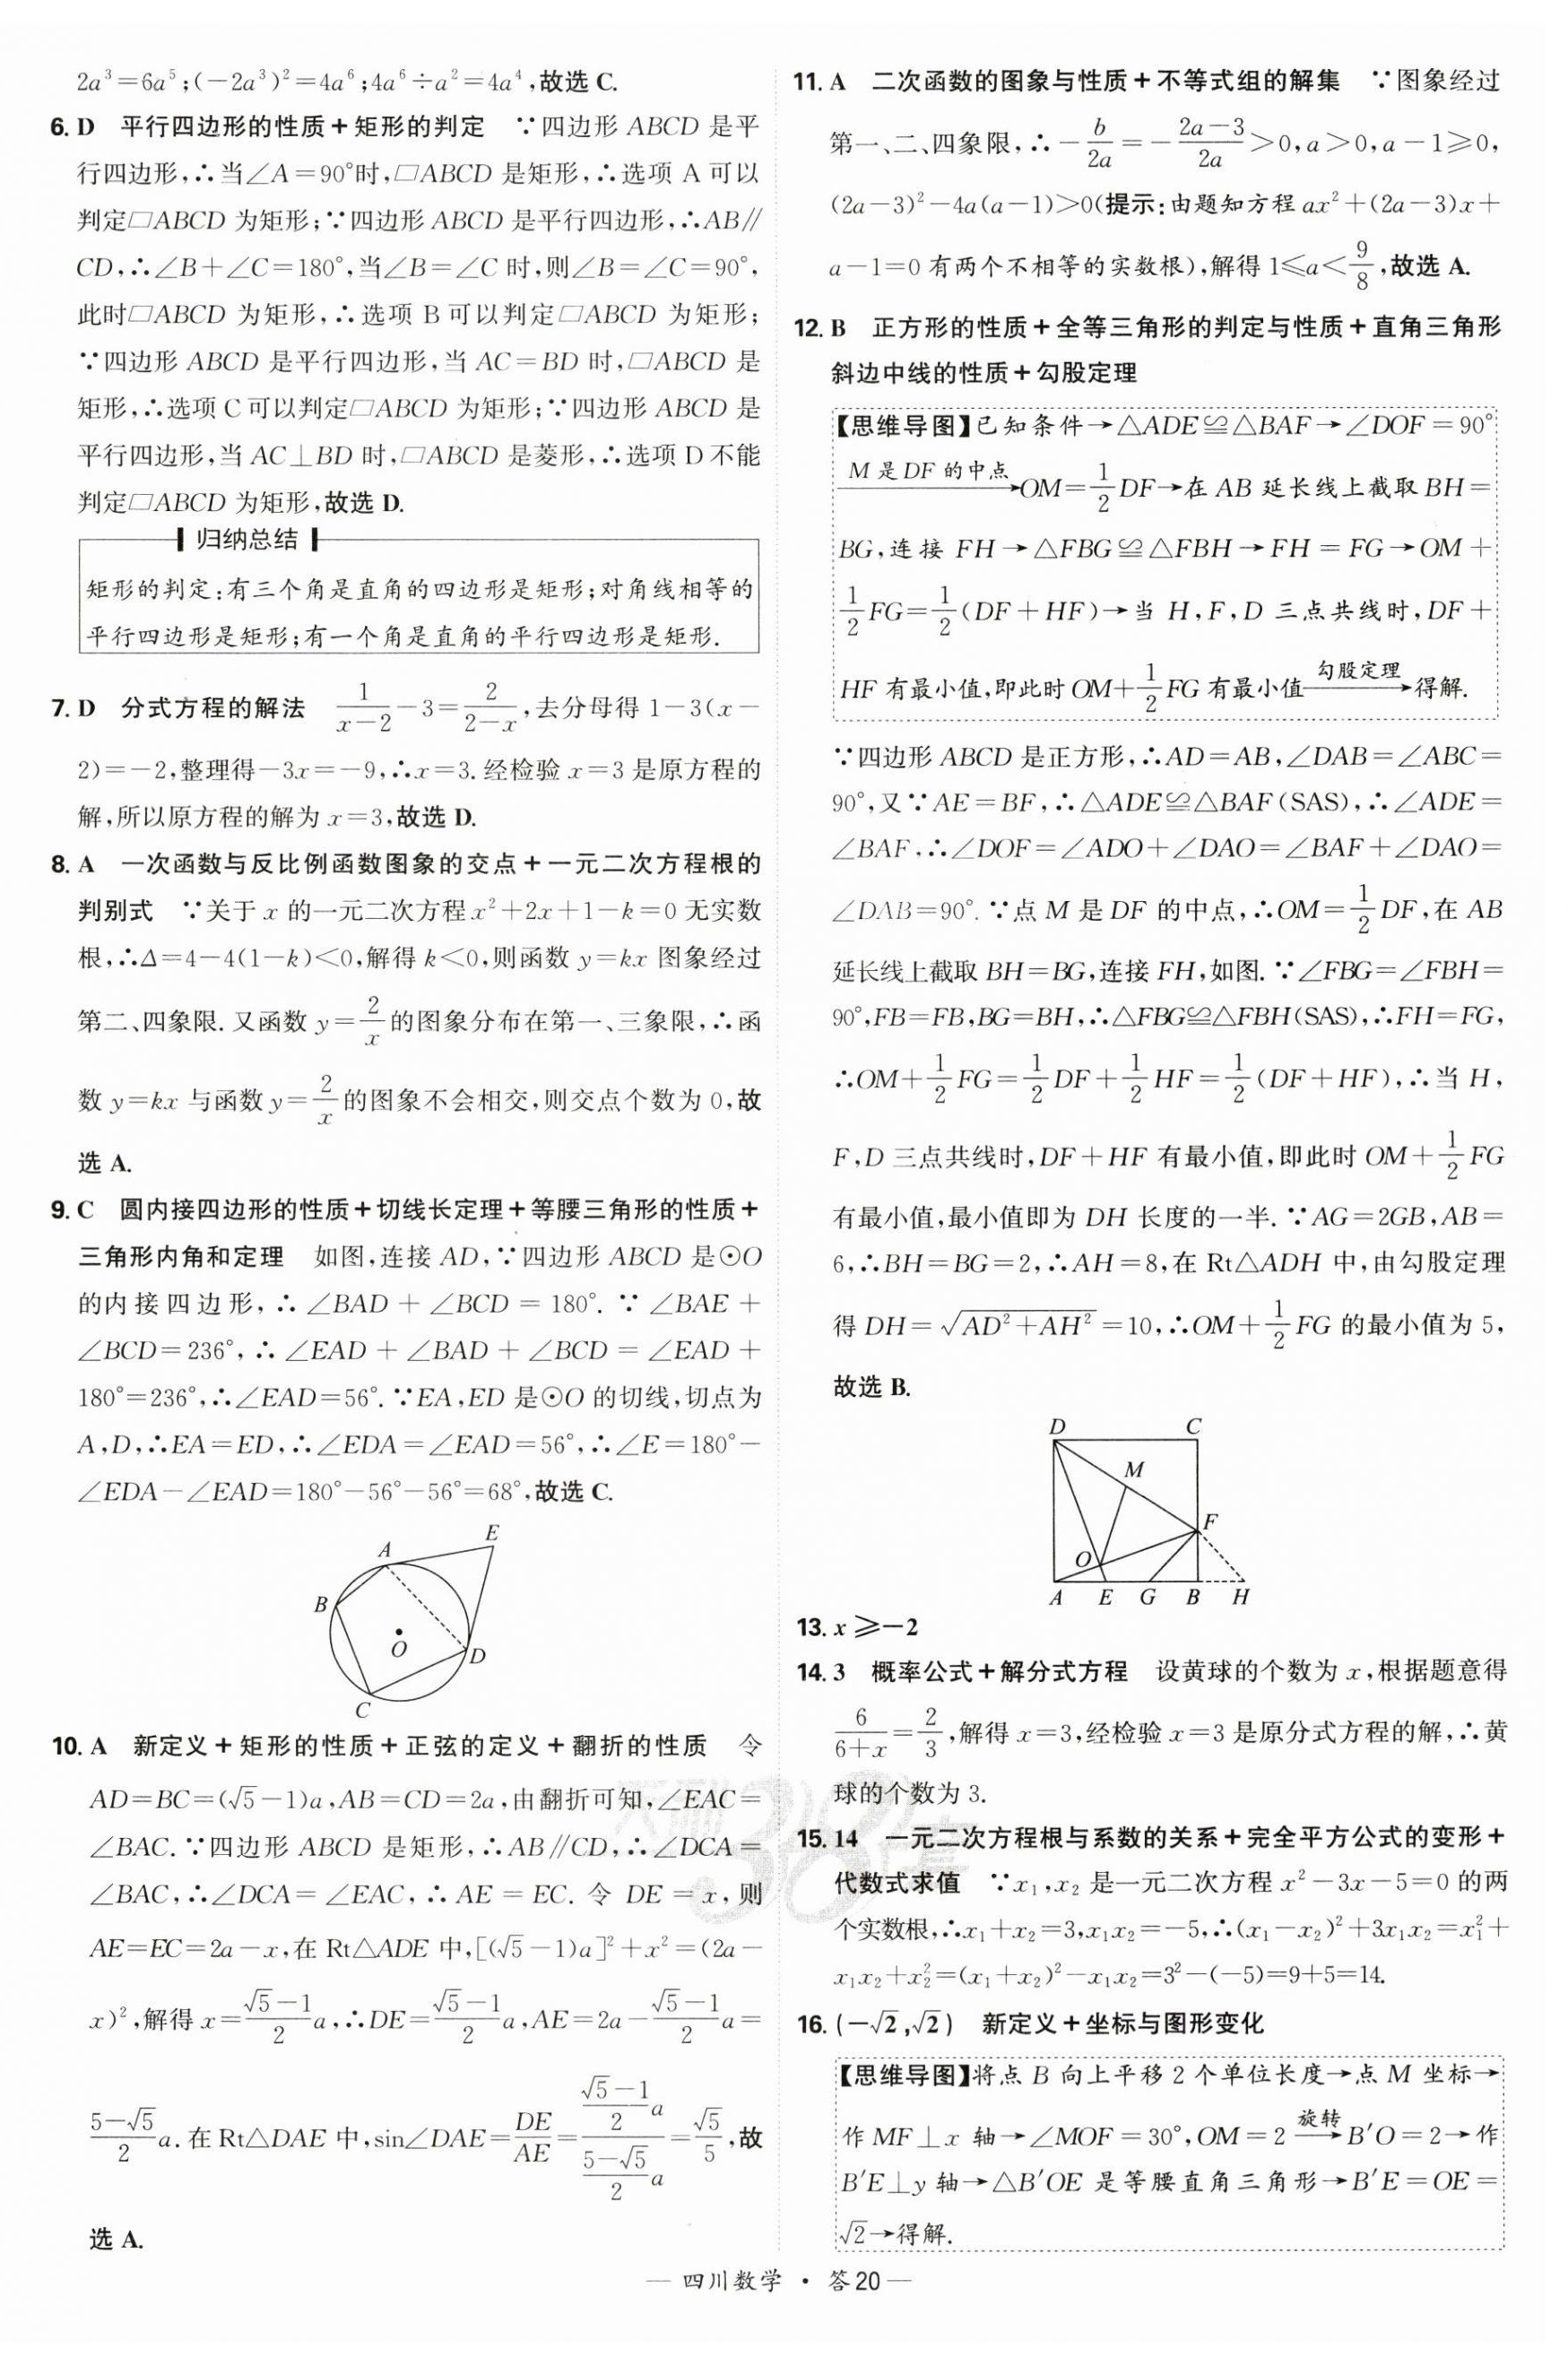 2a³=6a⁵;(-2a³)²=4a⁶;4a⁶÷a²=4a⁴,故选 C.
6. D 平行四边形的性质+矩形的判定 ∵四边形 ABCD 是平
行四边形,∴当∠A=90°时,▱ABCD 是矩形,∴选项 A 可以
判定▱ABCD 为矩形;∵四边形 ABCD 是平行四边形,∴AB∥
CD,∴∠B+∠C=180°,当∠B=∠C 时,则∠B=∠C=90°,
此时▱ABCD 为矩形,∴选项 B 可以判定▱ABCD 为矩形;
∵四边形 ABCD 是平行四边形,当 AC=BD 时,▱ABCD 是
矩形,∴选项 C 可以判定▱ABCD 为矩形;∵四边形 ABCD 是
平行四边形,当 AC⊥BD 时,▱ABCD 是菱形,∴选项 D 不能
判定▱ABCD 为矩形,故选 D.
归纳总结
矩形的判定:有三个角是直角的四边形是矩形;对角线相等的
平行四边形是矩形;有一个角是直角的平行四边形是矩形.
7. D 分式方程的解法 1/(x-2)-3=2/(2-x),去分母得 1-3(x-
2)=-2,整理得-3x=-9,∴x=3.经检验 x=3 是原方程的
解,所以原方程的解为 x=3,故选 D.
8. A 一次函数与反比例函数图象的交点+一元二次方程根的
判别式 ∵关于 x 的一元二次方程 x²+2x+1-k=0 无实数
根,∴Δ=4-4(1-k)<0,解得 k<0,则函数 y=kx 图象经过
第二、四象限.又函数 y=2/x 的图象分布在第一、三象限,∴函
数 y=kx 与函数 y=2/x 的图象不会相交,则交点个数为 0,故
选 A.
9. C 圆内接四边形的性质+切线长定理+等腰三角形的性质+
三角形内角和定理 如图,连接 AD,∵四边形 ABCD 是⊙O
的内接四边形,∴∠BAD+∠BCD=180°.∵∠BAE+
∠BCD=236°,∴∠EAD+∠BAD+∠BCD=∠EAD+
180°=236°,∴∠EAD=56°.∵EA,ED 是⊙O 的切线,切点为
A,D,∴EA=ED,∴∠EDA=∠EAD=56°,∴∠E=180°-
∠EDA-∠EAD=180°-56°-56°=68°,故选 C.
E
A
B
O
D
C
10. A 新定义+矩形的性质+正弦的定义+翻折的性质 令
AD=BC=(√5-1)a,AB=CD=2a,由翻折可知,∠EAC=
∠BAC.∵四边形 ABCD 是矩形,∴AB∥CD,∴∠DCA=
∠BAC,∴∠DCA=∠EAC,∴AE=EC.令 DE=x,则
AE=EC=2a-x,在 Rt△ADE 中,[(√5-1)a]²+x²=(2a-
x)²,解得 x=(√5-1)/2 a,∴DE=(√5-1)/2 a,AE=2a-(√5-1)/2 a=
(5-√5)/2 a.在 Rt△DAE 中,sin∠DAE=DE/AE=((√5-1)/2 a)/((5-√5)/2 a)=√5/5,故
选 A.
11. A 二次函数的图象与性质+不等式组的解集 ∵图象经过
第一、二、四象限,∴-b/2a=-(2a-3)/2a>0,a>0,a-1≥0,
(2a-3)²-4a(a-1)>0(提示:由题知方程 ax²+(2a-3)x+
a-1=0 有两个不相等的实数根),解得 1≤a<9/8,故选 A.
12. B 正方形的性质+全等三角形的判定与性质+直角三角形
斜边中线的性质+勾股定理
【思维导图】已知条件→△ADE≌△BAF→∠DOF=90°
M 是 DF 的中点→OM=1/2 DF→在 AB 延长线上截取 BH=
BG,连接 FH→△FBG≌△FBH→FH=FG→OM+
1/2 FG=1/2(DF+HF)→当 H,F,D 三点共线时,DF+
HF 有最小值,即此时 OM+1/2 FG 有最小值 勾股定理→得解.
∵四边形 ABCD 是正方形,∴AD=AB,∠DAB=∠ABC=
90°,又∵AE=BF,∴△ADE≌△BAF(SAS),∴∠ADE=
∠BAF,∴∠DOF=∠ADO+∠DAO=∠BAF+∠DAO=
∠DAB=90°.∵点 M 是 DF 的中点,∴OM=1/2 DF,在 AB
延长线上截取 BH=BG,连接 FH,如图.∵∠FBG=∠FBH=
90°,FB=FB,BG=BH,∴△FBG≌△FBH(SAS),∴FH=FG,
∴OM+1/2 FG=1/2 DF+1/2 HF=1/2(DF+HF),∴当 H,
F,D 三点共线时,DF+HF 有最小值,即此时 OM+1/2 FG
有最小值,最小值即为 DH 长度的一半.∵AG=2GB,AB=
6,∴BH=BG=2,∴AH=8,在 Rt△ADH 中,由勾股定理
得 DH=√(AD²+AH²)=10,∴OM+1/2 FG 的最小值为 5,
故选 B.
D C
M
F
O
A E G B H
13. x≥-2
14. 3 概率公式+解分式方程 设黄球的个数为 x,根据题意得
6/(6+x)=2/3,解得 x=3,经检验 x=3 是原分式方程的解,∴黄
球的个数为 3.
15. 14 一元二次方程根与系数的关系+完全平方公式的变形+
代数式求值 ∵x₁,x₂ 是一元二次方程 x²-3x-5=0 的两
个实数根,∴x₁+x₂=3,x₁x₂=-5,∴(x₁-x₂)²+3x₁x₂=x₁²+
x₁x₂+x₂²=(x₁+x₂)²-x₁x₂=3²-(-5)=9+5=14.
16. (-√2,√2) 新定义+坐标与图形变化
【思维导图】将点 B 向上平移 2 个单位长度→点 M 坐标→
作 MF⊥x 轴→∠MOF=30°,OM=2 旋转→B′O=2→作
B′E⊥y 轴→△B′OE 是等腰直角三角形→B′E=OE=
√2→得解.
— 四川数学 · 答20 —